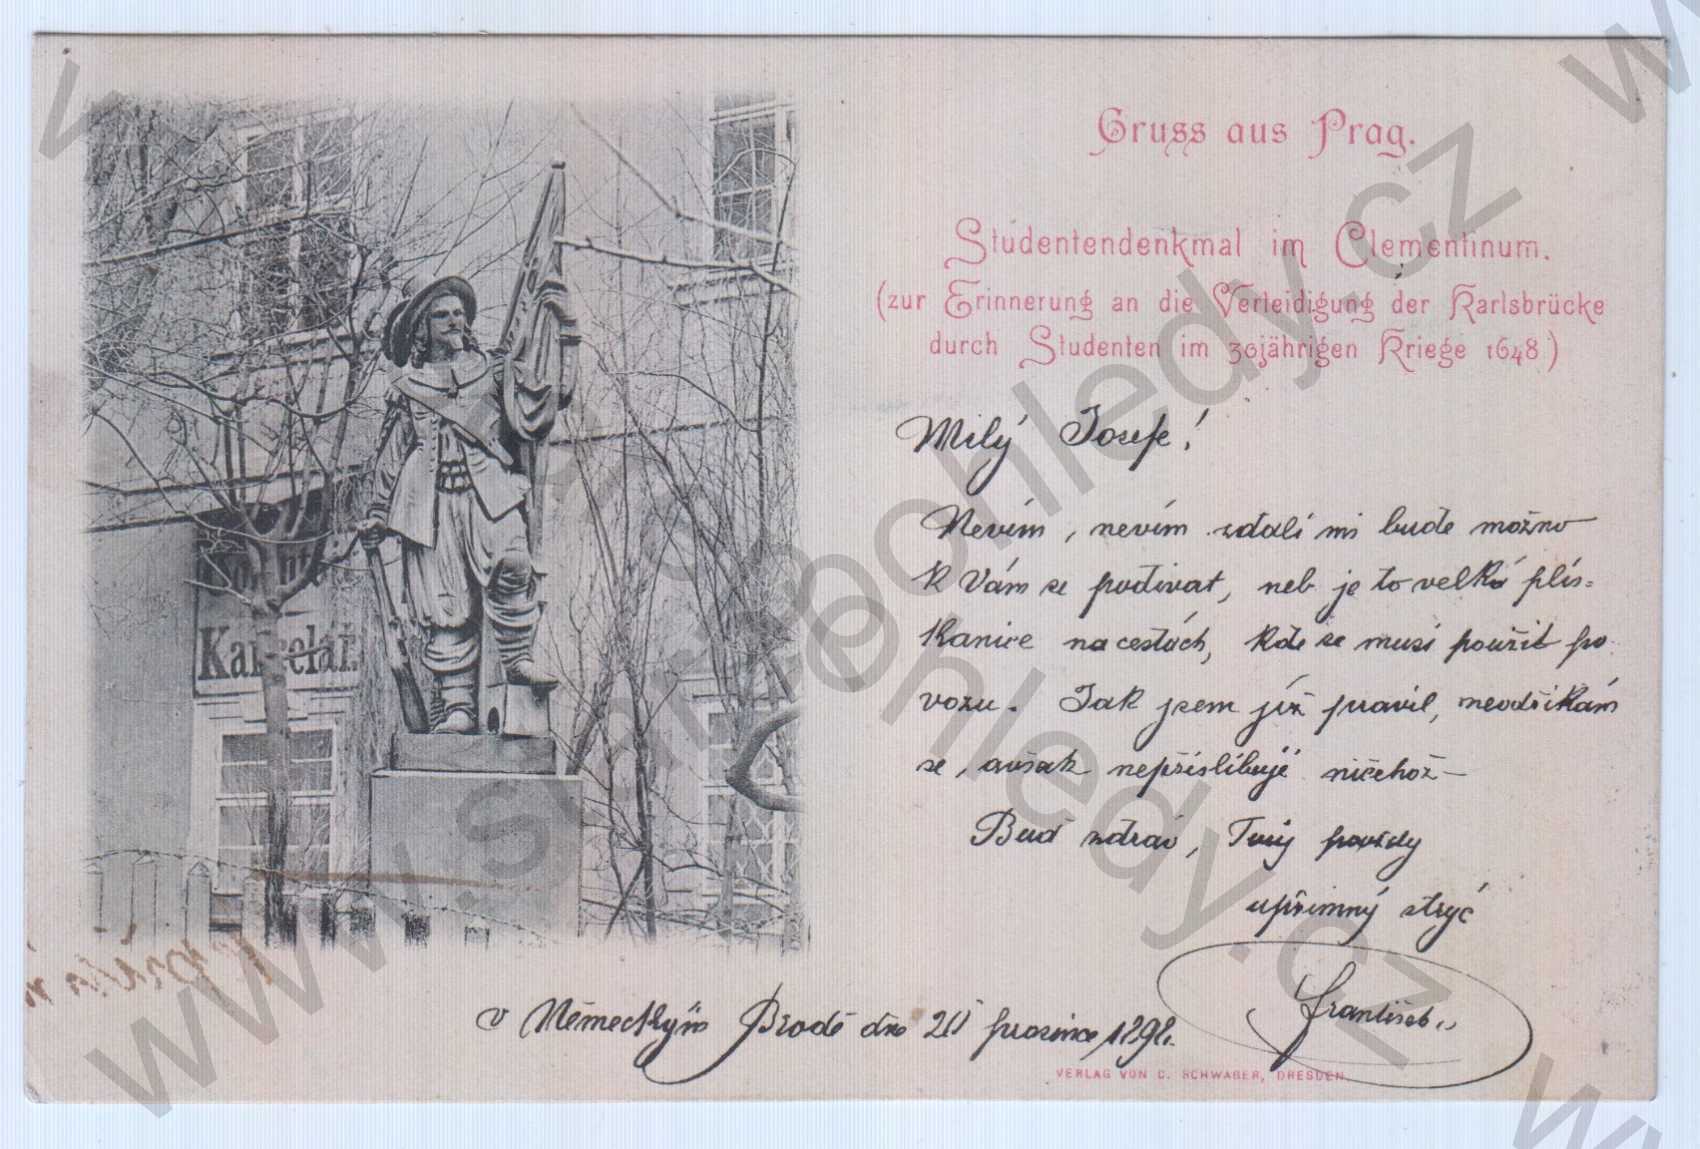 Gruss aus Prag.
Studentendenkmal im Clementinum.
(zur Erinnerung an die Verteidigung der Karlsbrücke
durch Studenten im 30jährigen Kriege 1648)
Milý Josefe!
Nevím, nevím zdali mi bude možno
k Vám se podívat, neb je to velká plís=
kanice na cestách, kde se musí použít po
vozu. Jak jsem již pravil, neodříkám
se, avšak nepřislibuji ničehož
Buď zdráv, Tvůj povždy
upřimný strýc
František
v Německým Brodě dne 20 prosince 1898.
VERLAG VON C. SCHWAGER, DRESDEN.
Kancelář
www.staropohledy.cz
www.staropohledy.cz